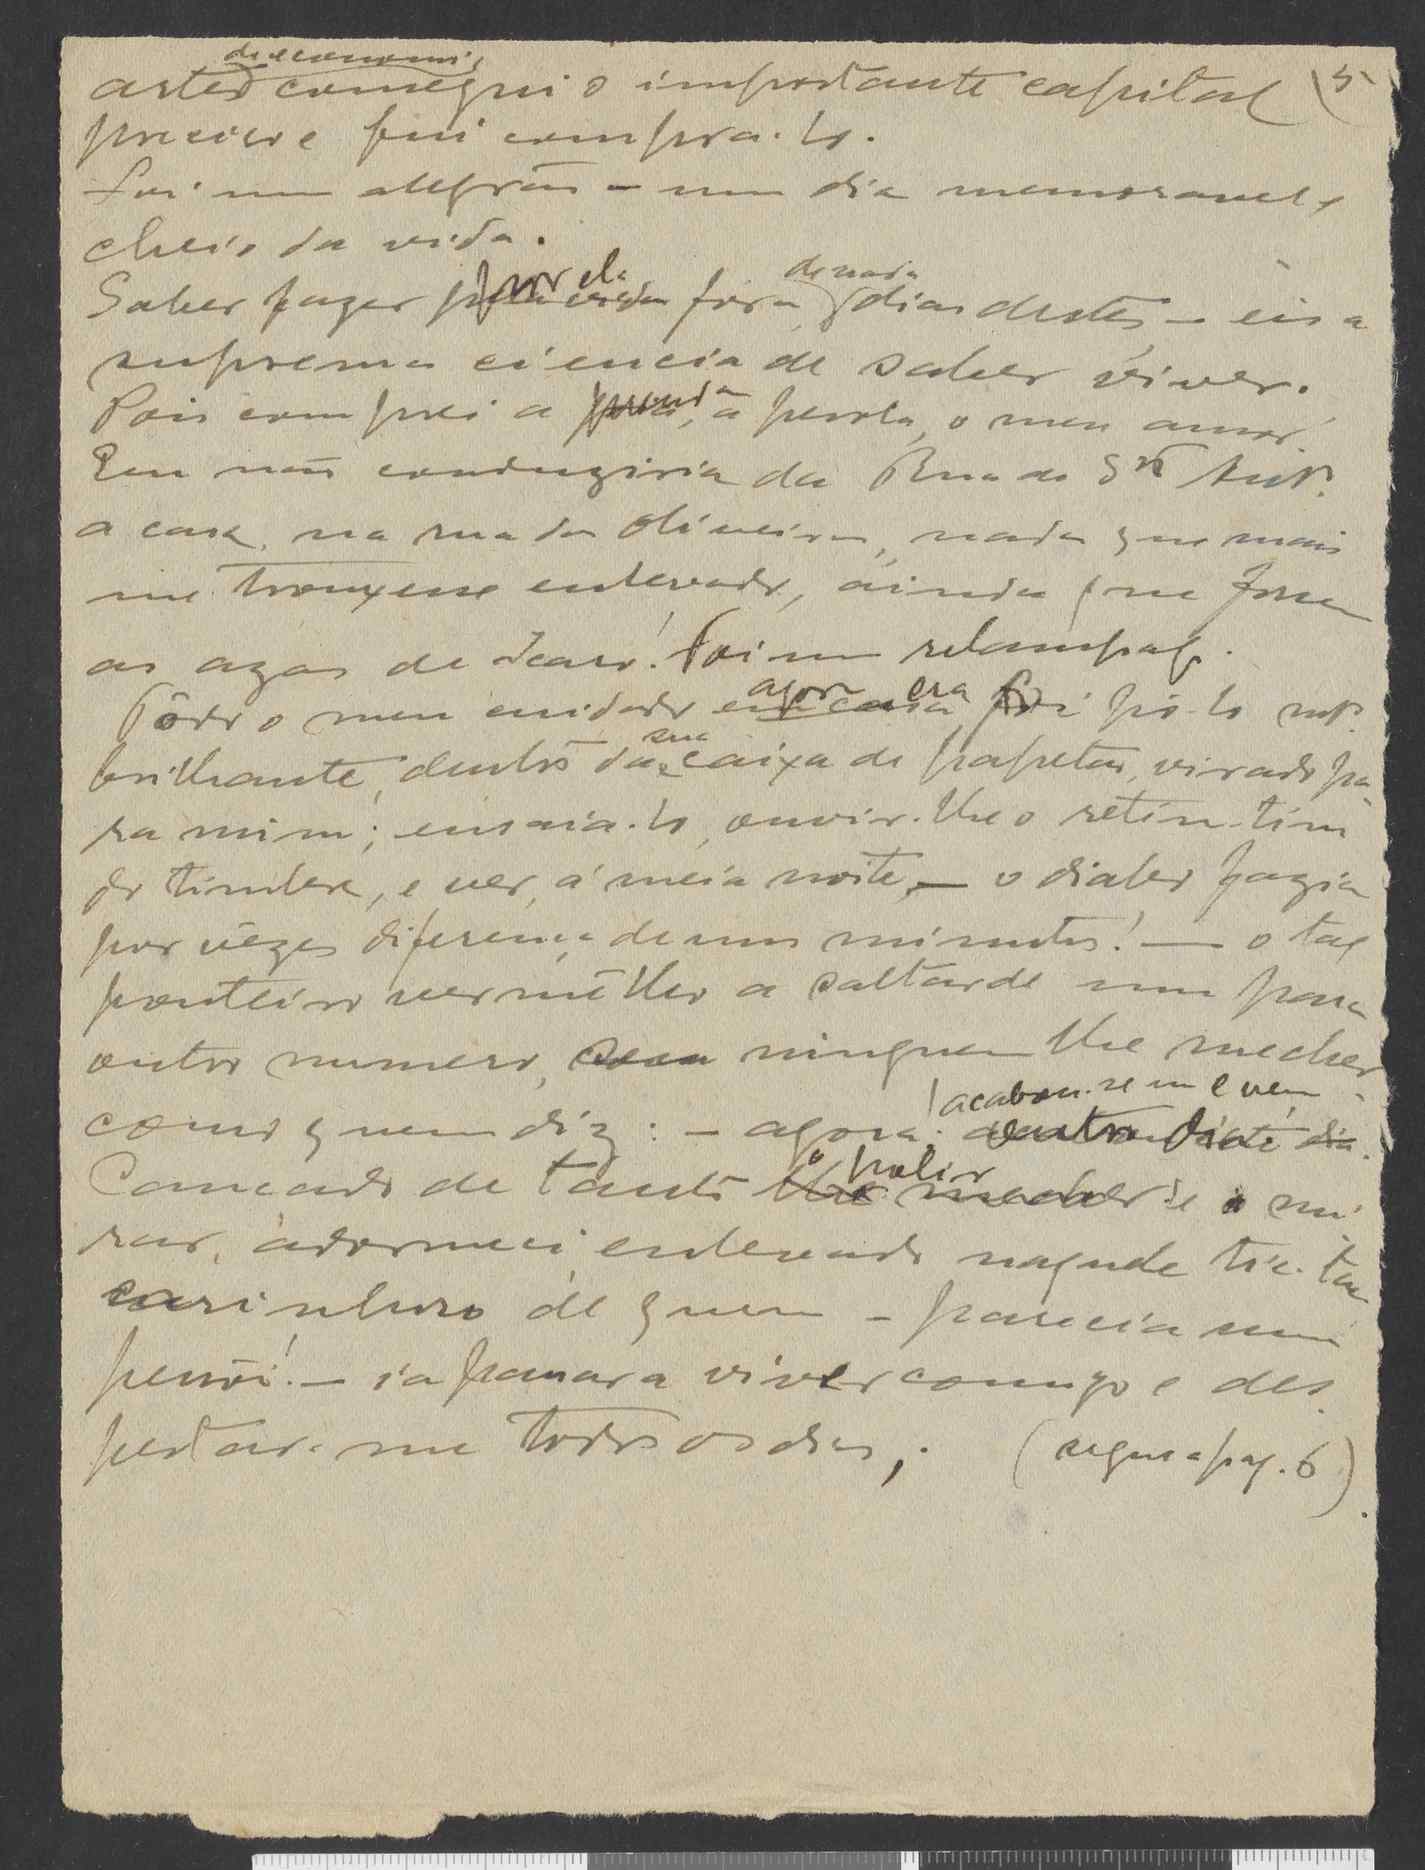 de economia
artes consegui o importante capital (5
preciso e fui compra-lo.
Foi um alegrão - um dia memoravel e
cheio da vida.
Saber fazer por ela fora, de nada, dias destes - eis a
suprema ciencia de saber viver.
Pois comprei a prenda, a perola, o meu amor!
Eu não conduziria da Rua de Stº Antº
a casa, na rua da Oliveira, nada que mais
me trouxesse enlevado, ainda que fossem
as azas de Icaro! Foi um relampago.
Todo o meu cuidado agora era pô-lo
brilhante, dentro da sua caixa de papelão, virado pa-
ra mim; ensaia-lo, ouvir-lhe o retin-tim
do timbre, e ver, á meia noite, — o diabo fazia
por vêzes diferença de uns minutos! — o tal
ponteiro vermêlho a saltar de um para
outro numero, sem ninguem lhe mecher
como quem diz: - agora acabou-se um e vem
outro dia.
Cansado de tanto o polir e o mi-
rar, adormeci enlevado naquele tic-tac
carinhoso de quem - parecia um
penoi! — ia passar a viver comigo e des-
pertar-me todos os dias,. (segue a pag. 6).